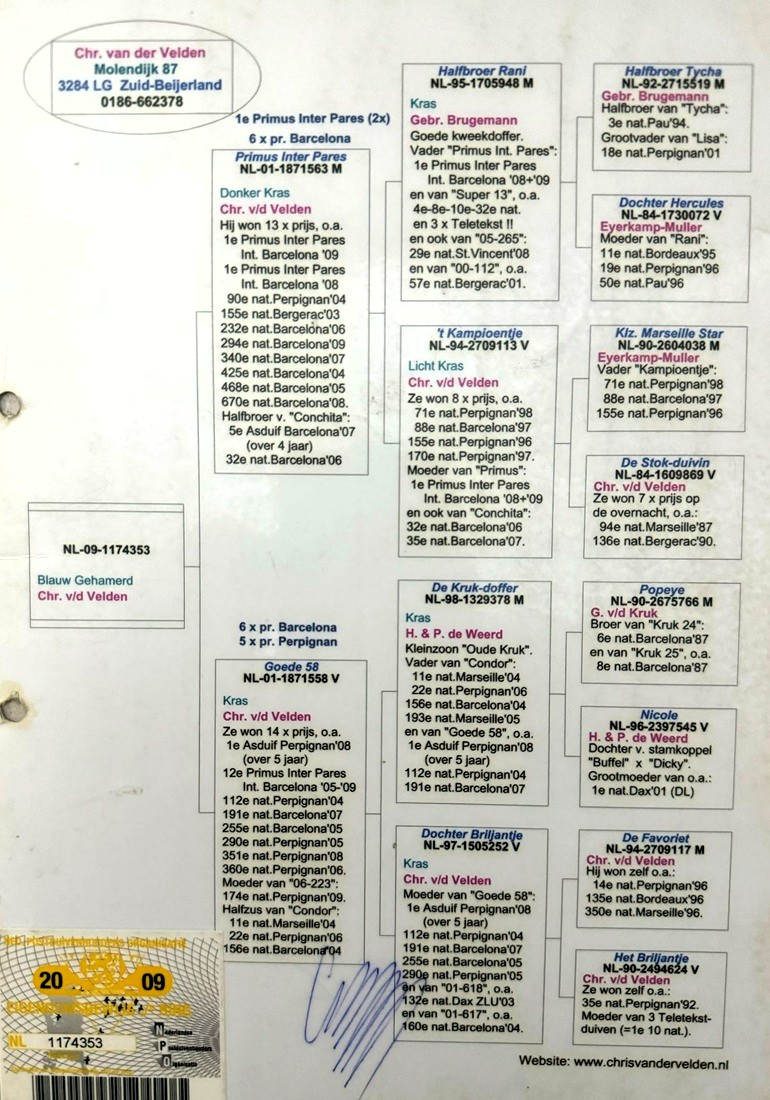 Chr. van der Velden
Molendijk 87
3284 LG Zuid-Beijerland
0186-662378
NL-09-1174353
Blauw Gehamerd
Chr. v/d Velden
1e Primus Inter Pares (2x)
6 x pr. Barcelona
Primus Inter Pares
NL-01-1871563 M
Donker Kras
Chr. v/d Velden
Hij won 13 x prijs, o.a.
1e Primus Inter Pares
Int. Barcelona '09
1e Primus Inter Pares
Int. Barcelona '08
90e nat.Perpignan'04
155e nat.Bergerac'03
232e nat.Barcelona'06
294e nat.Barcelona'09
340e nat.Barcelona'07
425e nat.Barcelona'04
468e nat.Barcelona'05
670e nat.Barcelona'08.
Halfbroer v. "Conchita":
5e Asduif Barcelona'07
(over 4 jaar)
32e nat.Barcelona'06
6 x pr. Barcelona
5 x pr. Perpignan
Goede 58
NL-01-1871558 V
Kras
Chr. v/d Velden
Ze won 14 x prijs, o.a.
1e Asduif Perpignan'08
(over 5 jaar)
12e Primus Inter Pares
Int. Barcelona '05-'09
112e nat.Perpignan'04
191e nat.Barcelona'07
255e nat.Barcelona'05
290e nat.Perpignan'05
351e nat.Perpignan'08
360e nat.Perpignan'06.
Moeder van "06-223":
174e nat.Perpignan'09.
Halfzus van "Condor":
11e nat.Marseille'04
22e nat.Perpignan'06
156e nat.Barcelona'04
Halfbroer Rani
NL-95-1705948 M
Kras
Gebr. Brugemann
Goede kweekdoffer.
Vader "Primus Int. Pares":
1e Primus Inter Pares
Int. Barcelona '08+'09
en van "Super 13", o.a.
4e-8e-10e-32e nat.
en 3 x Teletekst !!
en ook van "05-265":
29e nat.St.Vincent'08
en van "00-112", o.a.
57e nat.Bergerac'01.
't Kampioentje
NL-94-2709113 V
Licht Kras
Chr. v/d Velden
Ze won 8 x prijs, o.a.
71e nat.Perpignan'98
88e nat.Barcelona'97
155e nat.Perpignan'96
170e nat.Perpignan'97.
Moeder van "Primus":
1e Primus Inter Pares
Int. Barcelona '08+'09
en ook van "Conchita":
32e nat.Barcelona'06
35e nat.Barcelona'07.
De Kruk-doffer
NL-98-1329378 M
Kras
H. & P. de Weerd
Kleinzoon "Oude Kruk".
Vader van "Condor":
11e nat.Marseille'04
22e nat.Perpignan'06
156e nat.Barcelona'04
193e nat.Marseille'05
en van "Goede 58", o.a.
1e Asduif Perpignan'08
(over 5 jaar)
112e nat.Perpignan'04
191e nat.Barcelona'07
Dochter Briljantje
NL-97-1505252 V
Kras
Chr. v/d Velden
Moeder van "Goede 58":
1e Asduif Perpignan'08
(over 5 jaar)
112e nat.Perpignan'04
191e nat.Barcelona'07
255e nat.Barcelona'05
290e nat.Perpignan'05
en van "01-618", o.a.
132e nat.Dax ZLU'03
en van "01-617", o.a.
160e nat.Barcelona'04.
Halfbroer Tycha
NL-92-2715519 M
Gebr. Brugemann
Halfbroer van "Tycha":
3e nat.Pau'94.
Grootvader van "Lisa":
18e nat.Perpignan'01
Dochter Hercules
NL-84-1730072 V
Eyerkamp-Muller
Moeder van "Rani":
11e nat.Bordeaux'95
19e nat.Perpignan'96
50e nat.Pau'96
Klz. Marseille Star
NL-90-2604038 M
Eyerkamp-Muller
Vader "Kampioentje":
71e nat.Perpignan'98
88e nat.Barcelona'97
155e nat.Perpignan'96
De Stok-duivin
NL-84-1609869 V
Chr. v/d Velden
Ze won 7 x prijs op
de overnacht, o.a.:
94e nat.Marseille'87
136e nat.Bergerac'90.
Popeye
NL-90-2675766 M
G. v/d Kruk
Broer van "Kruk 24":
6e nat.Barcelona'87
en van "Kruk 25", o.a.
8e nat.Barcelona'87
Nicole
NL-96-2397545 V
H. & P. de Weerd
Dochter v. stamkoppel
"Buffel" x "Dicky".
Grootmoeder van o.a.:
1e nat.Dax'01 (DL)
De Favoriet
NL-94-2709117 M
Chr. v/d Velden
Hij won zelf o.a.:
14e nat.Perpignan'96
135e nat.Bordeaux'96
350e nat.Marseille'96.
Het Briljantje
NL-90-2494624 V
Chr. v/d Velden
Ze won zelf o.a.:
35e nat.Perpignan'92.
Moeder van 3 Teletekst-
duiven (=1e 10 nat.).
20 09
NL 1174353
Nederlandse
Postduivenhouders
Organisatie
Website: www.chrisvandervelden.nl